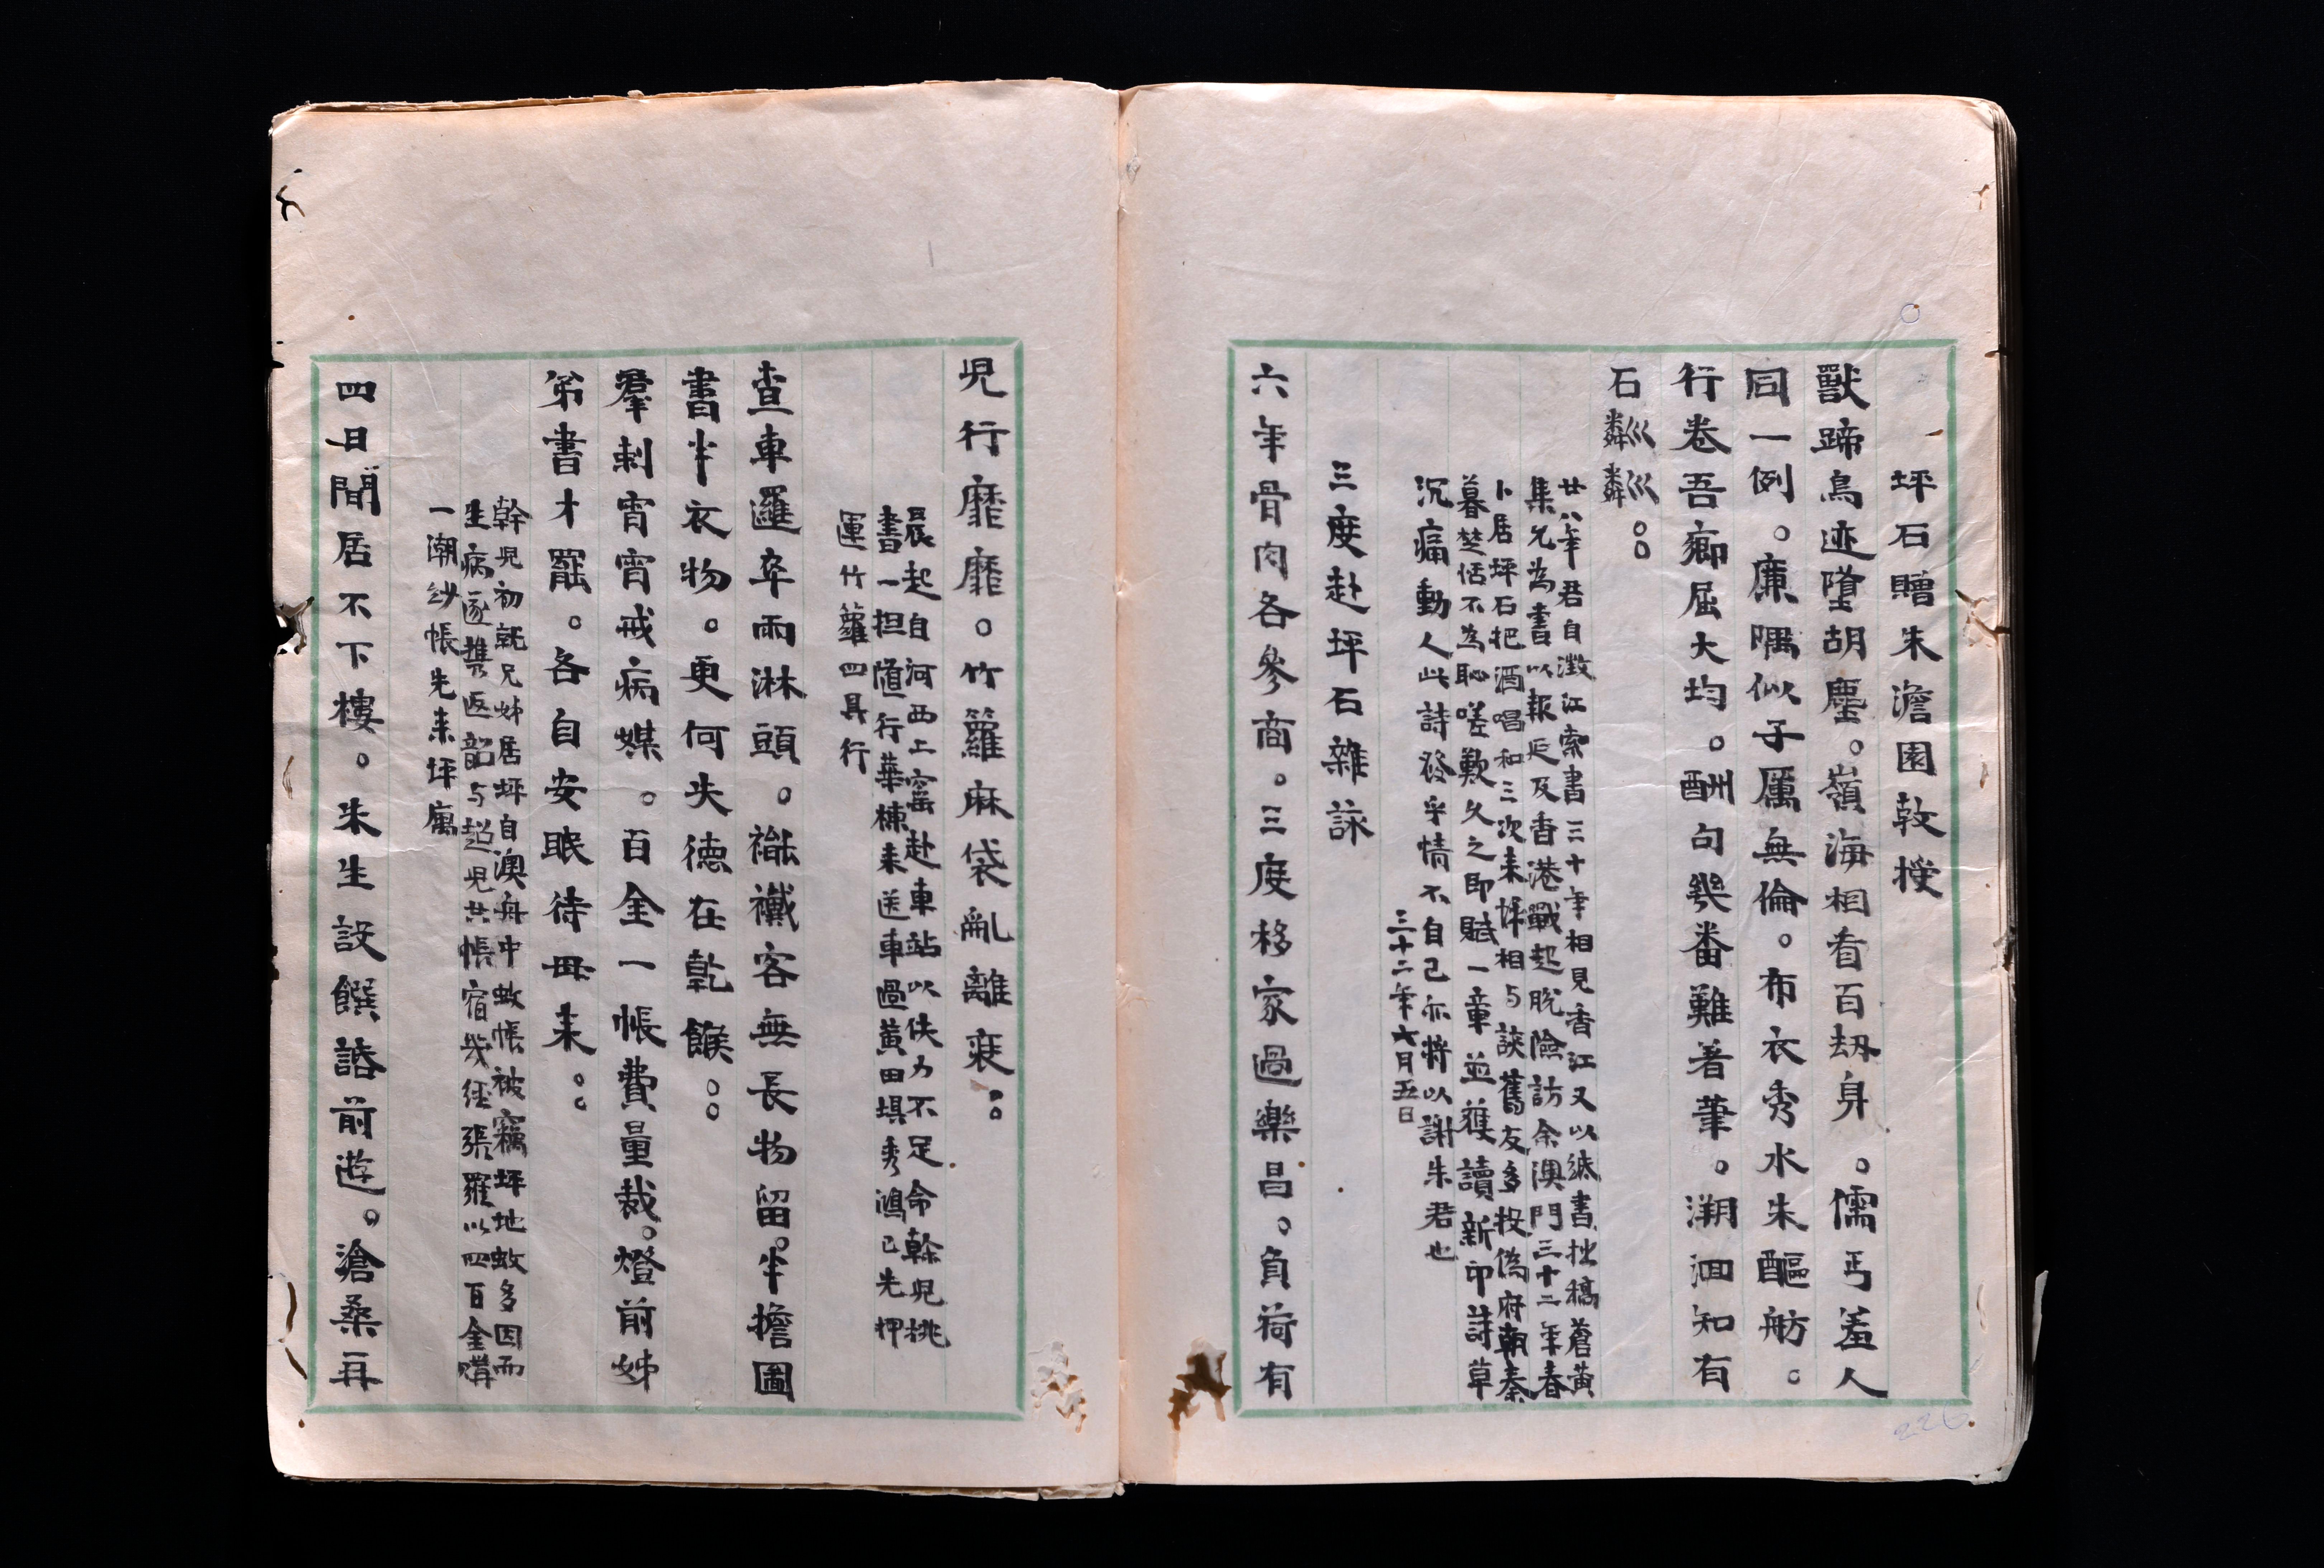 坪石贈朱澹園教授
獸蹄鳥迹墮胡塵。嶺海相看百刼身。儒丐羞人
同一例。廉隅似子厲無倫。布衣秀水朱醧舫。
行卷吾鄉屈大均。酬句幾番難著筆。溯洄知有
石粼粼。。
廿八年君自澂江索書三十年相見香江又以紙書拙稿蒼黃
集兄為書以報追及香港戰起脫險訪余澳門三十二年春
卜居坪石把酒唱和三次來坪相与談舊友多投偽府朝秦
暮楚恬不為恥嗟歎久之即賦一章並獲讀新印詩草
沉痛動人此詩發乎情不自已亦將以謝朱君也
三十二年六月五日
三度赴坪石雜詠
六年骨肉各參商。三度移家過樂昌。負荷有
兒行靡靡。竹籮麻袋亂離裝。。
晨起自河西上窰赴車站以伕力不足命榦兒挑
書一担隨行華棟來送車過黃田埧秀鴻已先押
運竹籮四具行
查車邏卒雨淋頭。襤襳客無長物留。半擔圖
書半衣物。更何失德在乾餱。。
羣刺宵宵戒病媒。百金一帳費量裁。燈前姊
弟書才罷。各自安眠待毋来。。
榦兒初就兄姊居坪自澳舟中蚊帳被竊坪地蚊多因而
生病遂携返韶与超兒共帳宿幾經張羅以四百金購
一潮紗帳先来坪寓
四日閒居不下樓。朱生設饌話前遊。滄桑再
226